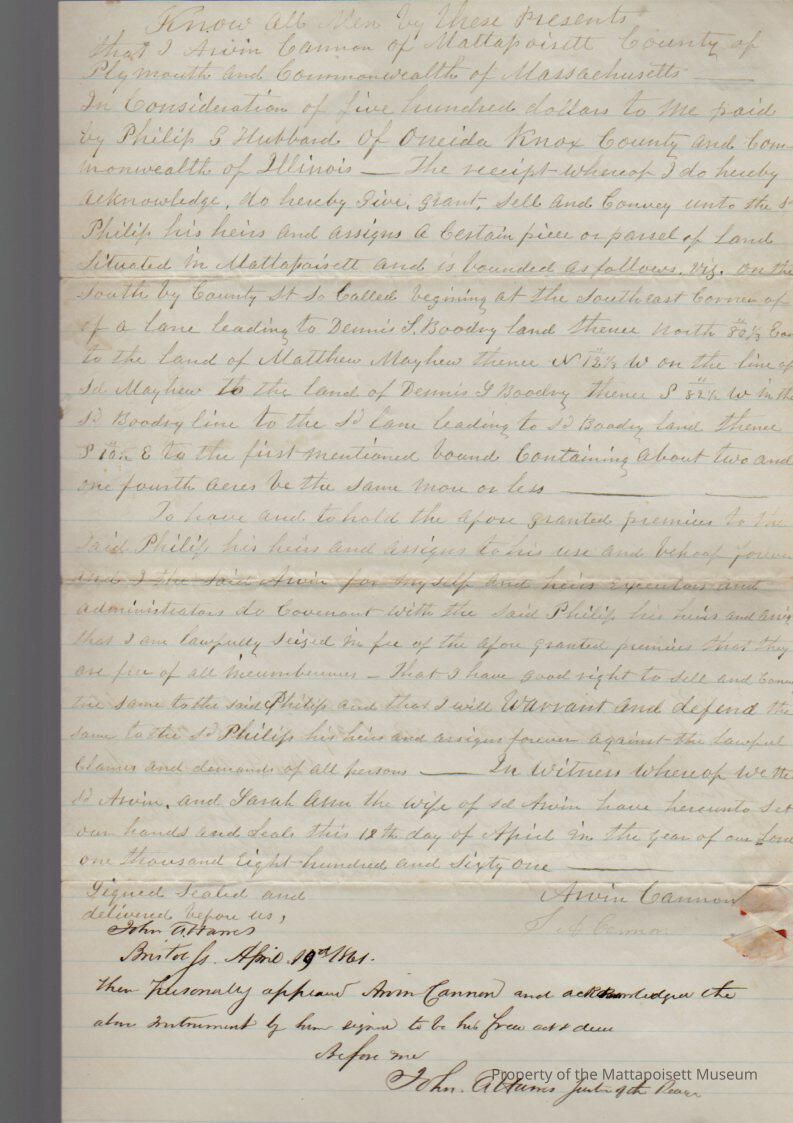 Know all Men by these Presents
that I Arvin Cannon of Mattapoisett County of
Plymouth and Commonwealth of Massachusetts
In Consideration of five hundred dollars to me paid
by Philip S Hubbard of Oneida Knox County and Com-
monwealth of Illinois — The receipt whereof I do hereby
acknowledge, do hereby Give, grant, Sell and Convey unto the sd
Philip his heirs and assigns a Certain piece or parsel of Land
Situated in Mattapoisett and is bounded as follows. Viz. on the
South by County St So Called begining at the Southeast Corner of
of a lane leading to Dennis S. Boodry land thence North
to the land of Matthew Mayhew thence N 12½ W on the line of
Sd Mayhew to the land of Dennis S Boodry thence S 82½ W in the
sd Boodry line to the sd lane leading to sd Boodry land thence
S E to the first mentioned bound Containing about two and
one fourth acres be the same more or less
To have and to hold the afore granted premises to the
Said Philip his heirs and assigns to his use and behoof forever
and I the said Arvin for myself and heirs executors and
administrators do Covenant with the said Philip his heirs and assigns
that I am lawfully Seized in fee of the afore granted premises that they
are free of all incumbrances – That I have good right to sell and Convey
the same to the said Philip and that I will Warrant and defend the
same to the sd Philip his heirs and assigns forever against the Lawful
Claims and demands of all persons — In Witness whereof we the
sd Arvin, and Sarah Ann the wife of sd Arvin have hereunto Set
our hands and Seals this 18th day of April in the year of our Lord
one thousand Eight hundred and Sixty one
Signed Sealed and
delivered before us,
Arvin Cannon
S A Cannon
John Attams
Bristol Ss. April 19th 1861.
then personally appeared Arvin Cannon and acknowledged the
above instrument by him signed to be his free act & deed
Before me
John. Attams Just of the Peace
Property of the Mattapoisett Museum